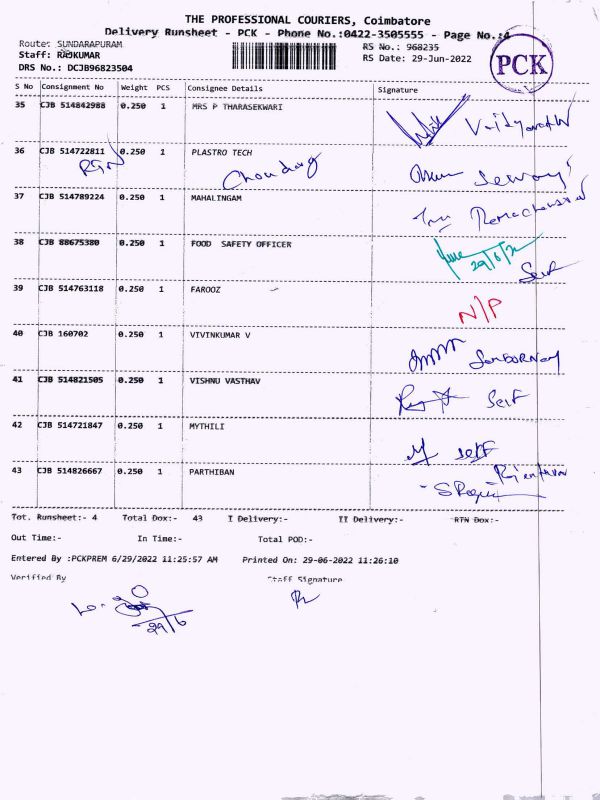 THE PROFESSIONAL COURIERS, Coimbatore
Delivery Runsheet - PCK - Phone No.:0422-3505555 - Page No.:4
Route: SUNDARAPURAM
RS No.: 968235
Staff: RAJKUMAR
RS Date: 29-Jun-2022
PCK
DRS No.: DCJB96823504
S No Consignment No Weight PCS Consignee Details Signature
35 CJB 514842988 0.250 1 MRS P THARASEKWARI
36 CJB 514722811 0.250 1 PLASTRO TECH
37 CJB 514789224 0.250 1 MAHALINGAM
38 CJB 88675380 0.250 1 FOOD SAFETY OFFICER
29/6/2
Self
39 CJB 514763118 0.250 1 FAROOZ
N/P
40 CJB 160702 0.250 1 VIVINKUMAR V
41 CJB 514821505 0.250 1 VISHNU VASTHAV
Self
42 CJB 514721847 0.250 1 MYTHILI
self
43 CJB 514826667 0.250 1 PARTHIBAN
Tot. Runsheet:- 4 Total Dox:- 43 I Delivery:- II Delivery:- RTN Dox:-
Out Time:- In Time:- Total POD:-
Entered By :PCKPREM 6/29/2022 11:25:57 AM Printed On: 29-06-2022 11:26:10
Verified By Staff Signature
29/6